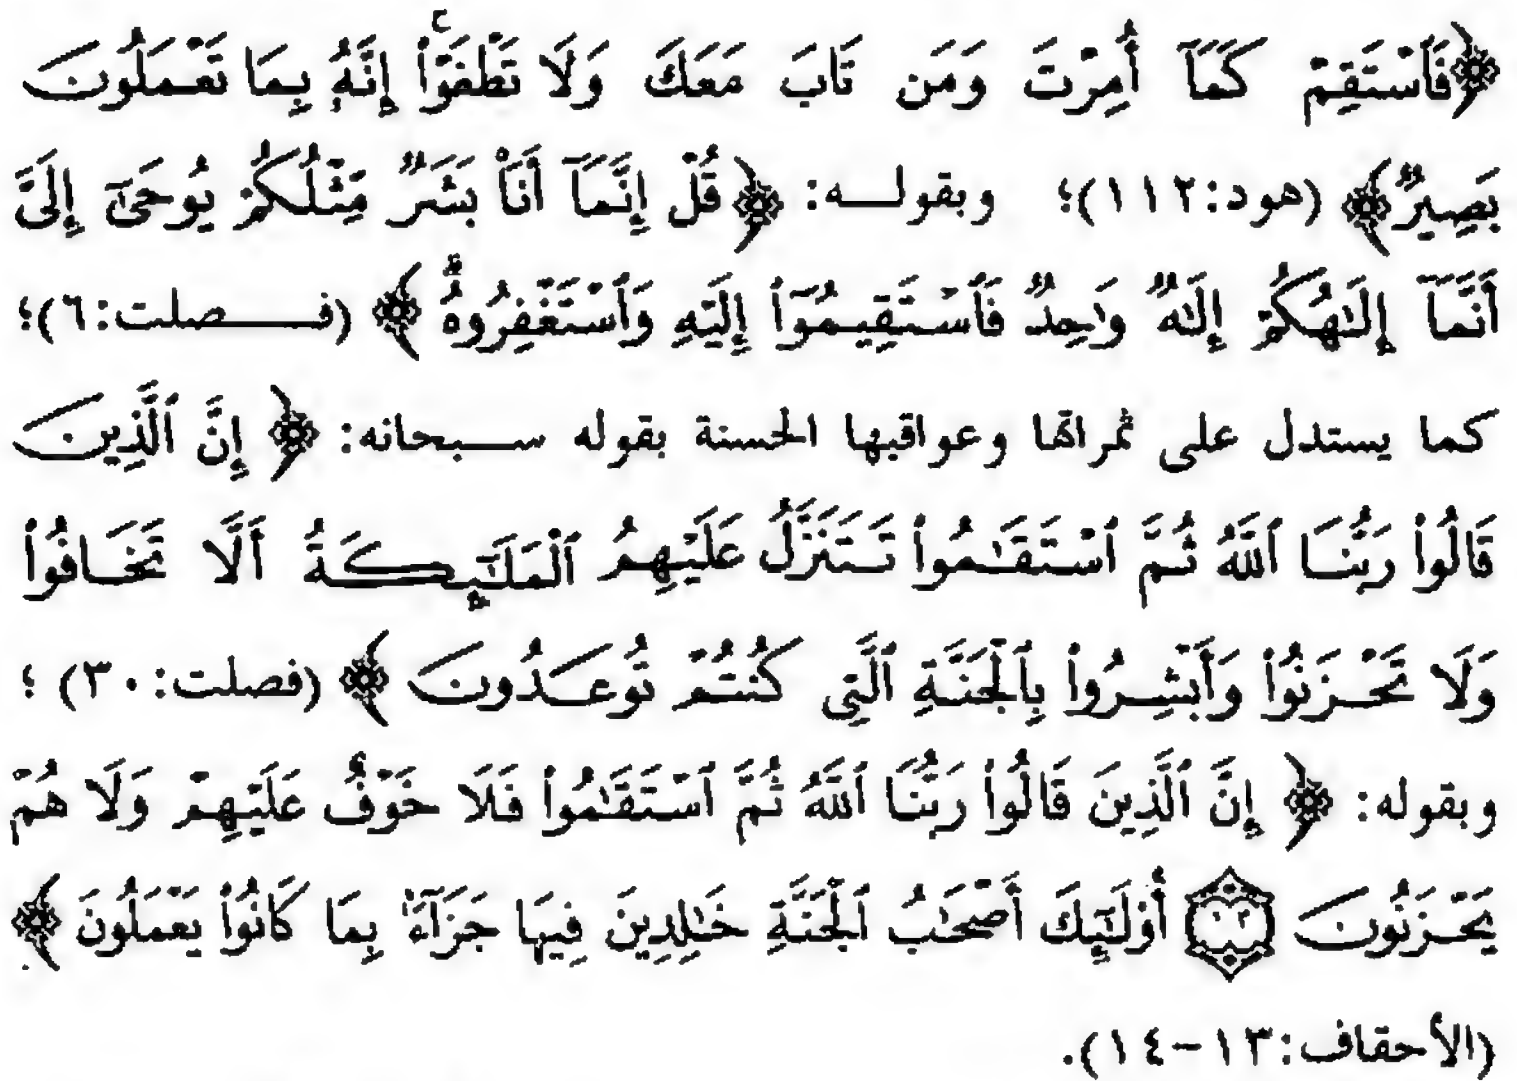 ﴿فَٱسْتَقِمْ كَمَآ أُمِرْتَ وَمَن تَابَ مَعَكَ وَلَا تَطْغَوْا۟ ۚ إِنَّهُۥ بِمَا تَعْمَلُونَ
بَصِيرٌ﴾ (هود:١١٢)؛ وبقولـــه: ﴿قُلْ إِنَّمَآ أَنَا۠ بَشَرٌ مِّثْلُكُمْ يُوحَىٰٓ إِلَىَّ
أَنَّمَآ إِلَـٰهُكُمْ إِلَـٰهٌ وَٰحِدٌ فَٱسْتَقِيمُوٓا۟ إِلَيْهِ وَٱسْتَغْفِرُوهُ ۗ﴾ (فـــــصلت:٦)؛
كما يستدل على ثمراتها وعواقبها الحسنة بقوله ســـبحانه: ﴿ إِنَّ ٱلَّذِينَ
قَالُوا۟ رَبُّنَا ٱللَّهُ ثُمَّ ٱسْتَقَـٰمُوا۟ تَتَنَزَّلُ عَلَيْهِمُ ٱلْمَلَـٰٓئِكَةُ أَلَّا تَخَافُوا۟
وَلَا تَحْزَنُوا۟ وَأَبْشِرُوا۟ بِٱلْجَنَّةِ ٱلَّتِى كُنتُمْ تُوعَدُونَ ﴾ (فصلت:٣٠) ؛
وبقوله: ﴿ إِنَّ ٱلَّذِينَ قَالُوا۟ رَبُّنَا ٱللَّهُ ثُمَّ ٱسْتَقَـٰمُوا۟ فَلَا خَوْفٌ عَلَيْهِمْ وَلَا هُمْ
يَحْزَنُونَ ١٣ أُو۟لَـٰٓئِكَ أَصْحَـٰبُ ٱلْجَنَّةِ خَـٰلِدِينَ فِيهَا جَزَآءًۢ بِمَا كَانُوا۟ يَعْمَلُونَ ﴾
(الأحقاف:١٣-١٤).